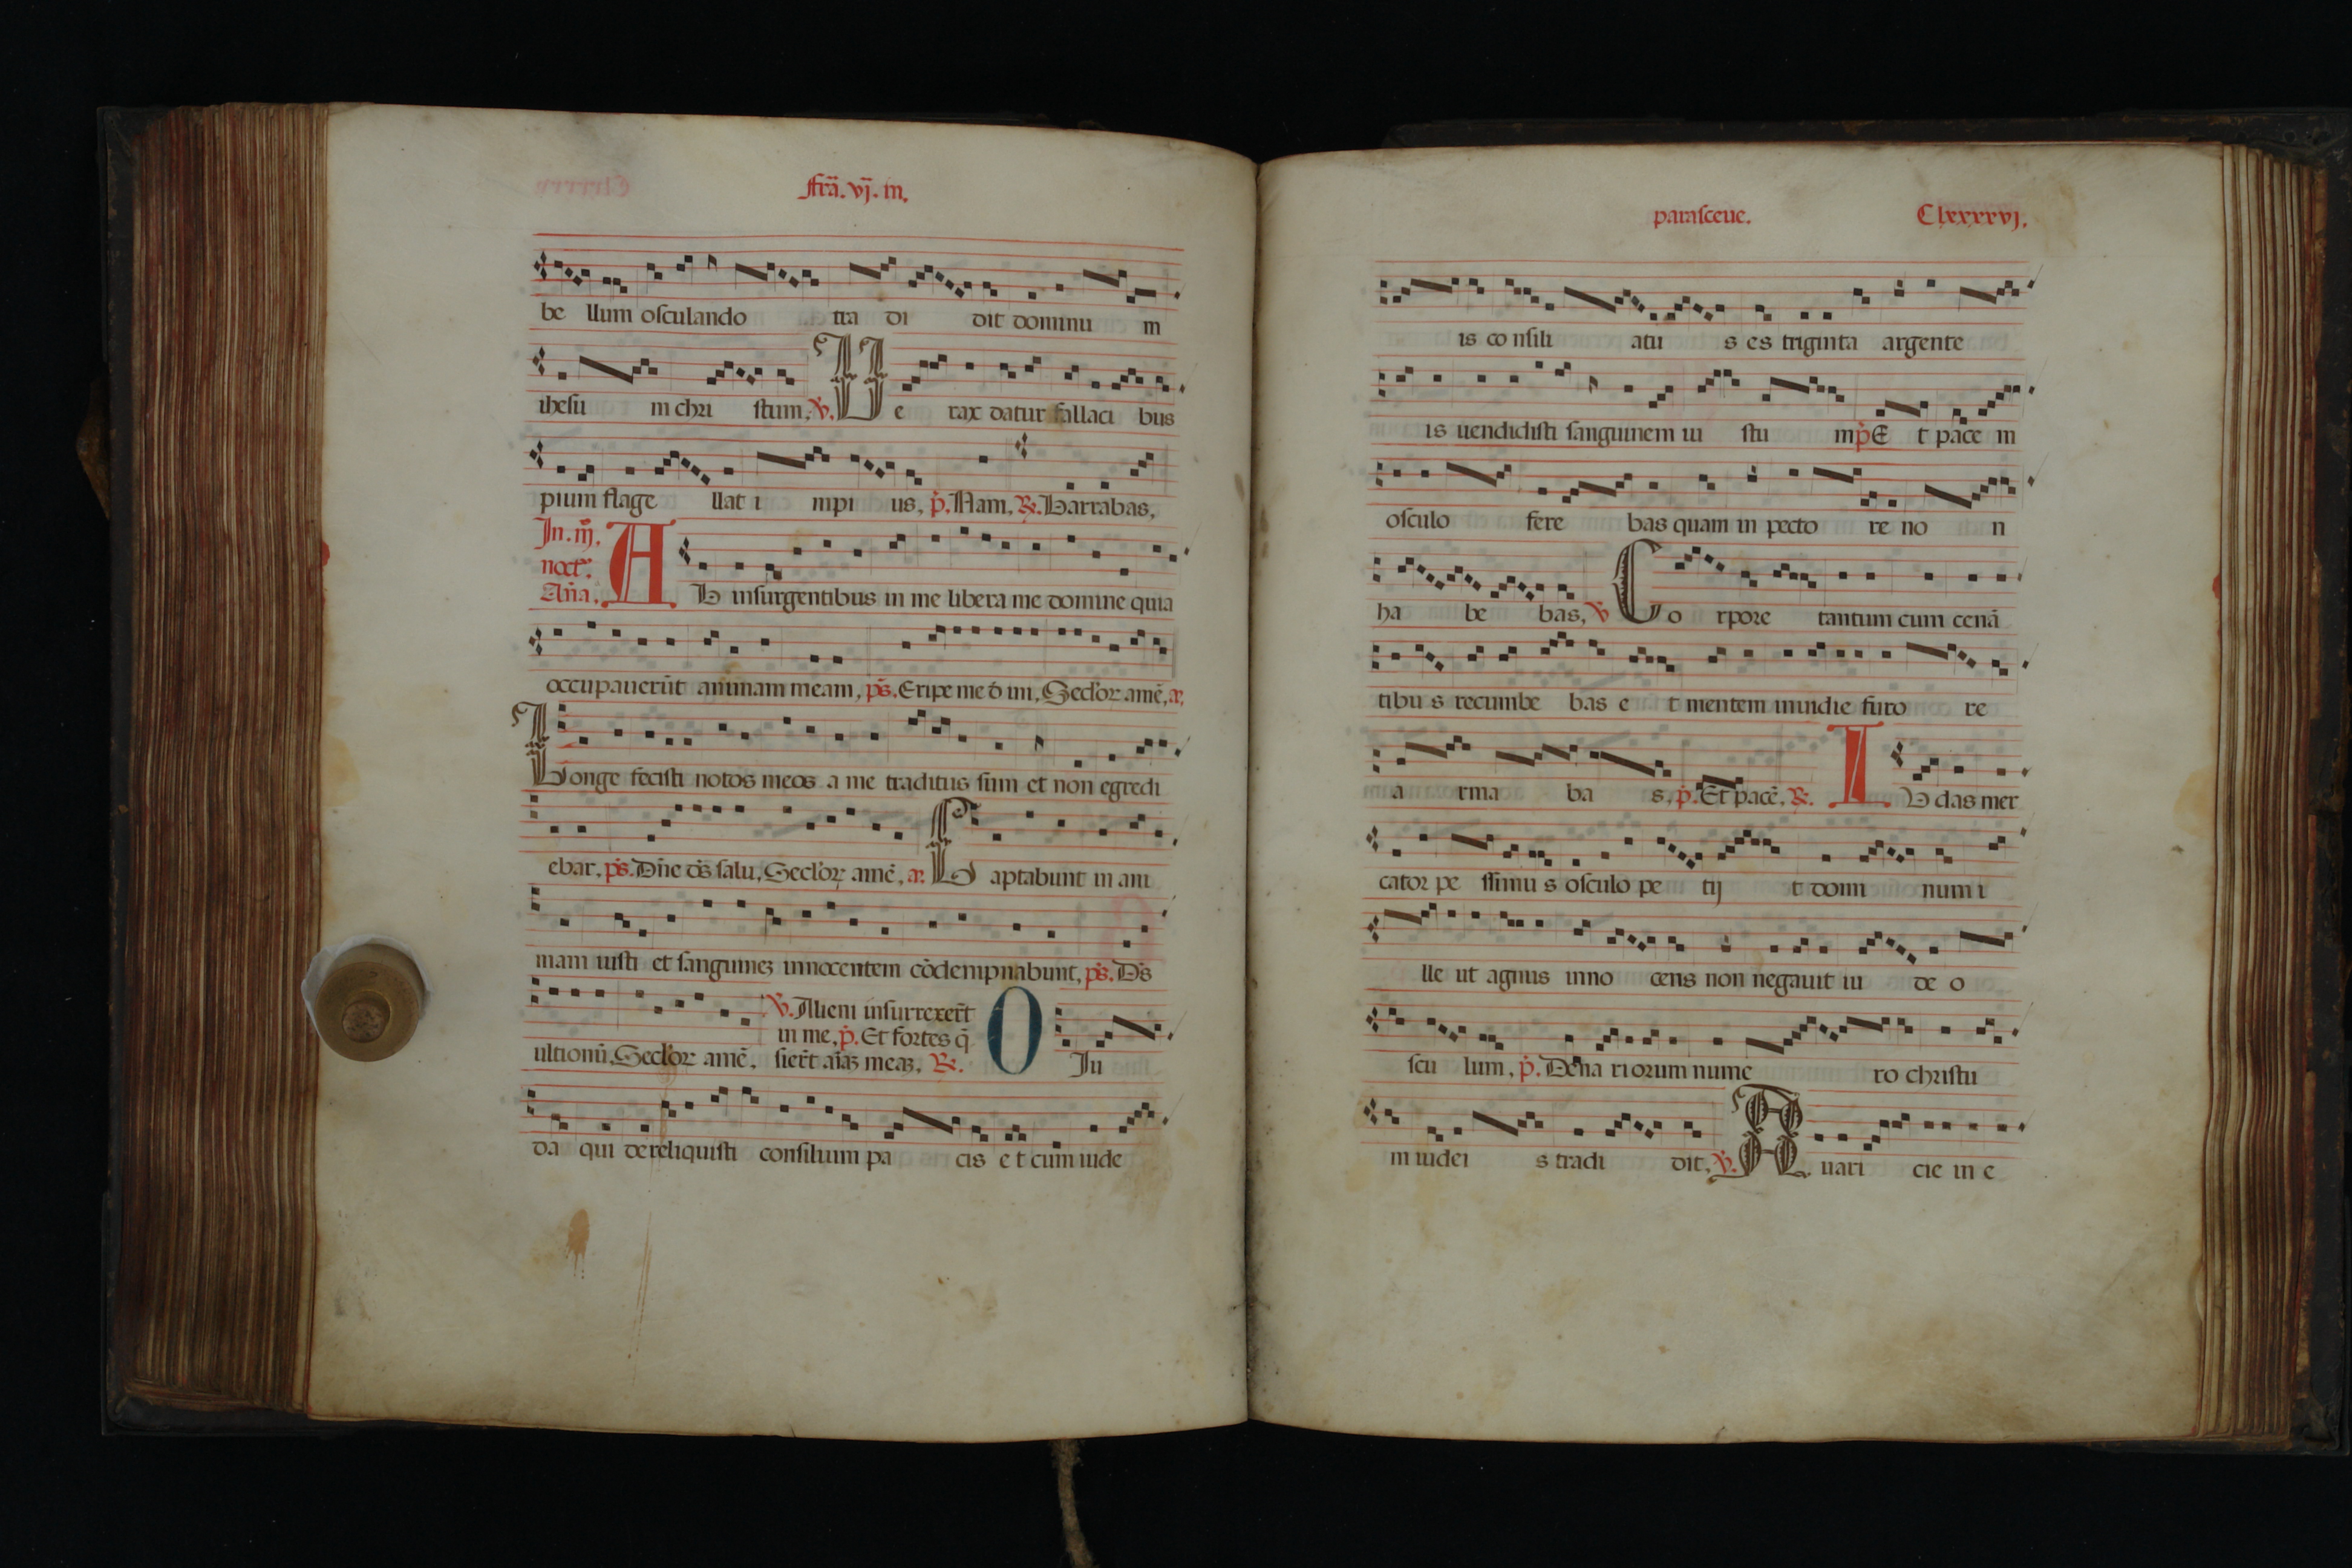 fr̃a. vj. in.
be llum osculando tra di dit dominu m
ihesu m chri stum, ℣. U e rax datur fallaci bus
pium flage llat i mpi us, p̃. Nam, ℟. Barrabas,
In. iij.
noct⁹.
Añа. A B insurgentibus in me libera me domine quia
occupauerūt animam meam, ps̄. Eripe me d im, Secl'oꝝ amē, a.
Longe fecisti notos meos a me traditus sum et non egredi
ebar, ps̄. Dñe ds̄ salu, Secl'oꝝ amē, a. C aptabunt in ani
mam iusti et sanguineꝫ innocentem cōdempnabunt, ps̄. Ds̄
℣. Alieni insurrexer̄t
in me, p̃. Et fortes q̄
ultionū, Secl'oꝝ amē. sier̄t aīaꝫ meaꝫ, ℟. O Iu
da qui dereliquisti consilium pa cis e t cum iude
parasceue. Clxxxxvj.
is co nsili atu s es triginta argente
is uendidisti sanguinem iu stu m p̃ E t pace m
osculo fere bas quam in pecto re no n
ha be bas, ℣ C o rpore tantum cum cenā
tibu s recumbe bas e t mentem inuidie furo re
a rma ba s, p̃. Et pacē, ℟. I U das mer
cator pe ssimu s osculo pe tij t domi num i
lle ut agnus inno cens non negauit iu de o
scu lum, p̃. Dena riorum nume ro christu
m iudei s tradi dit, ℣. A uari cie in e